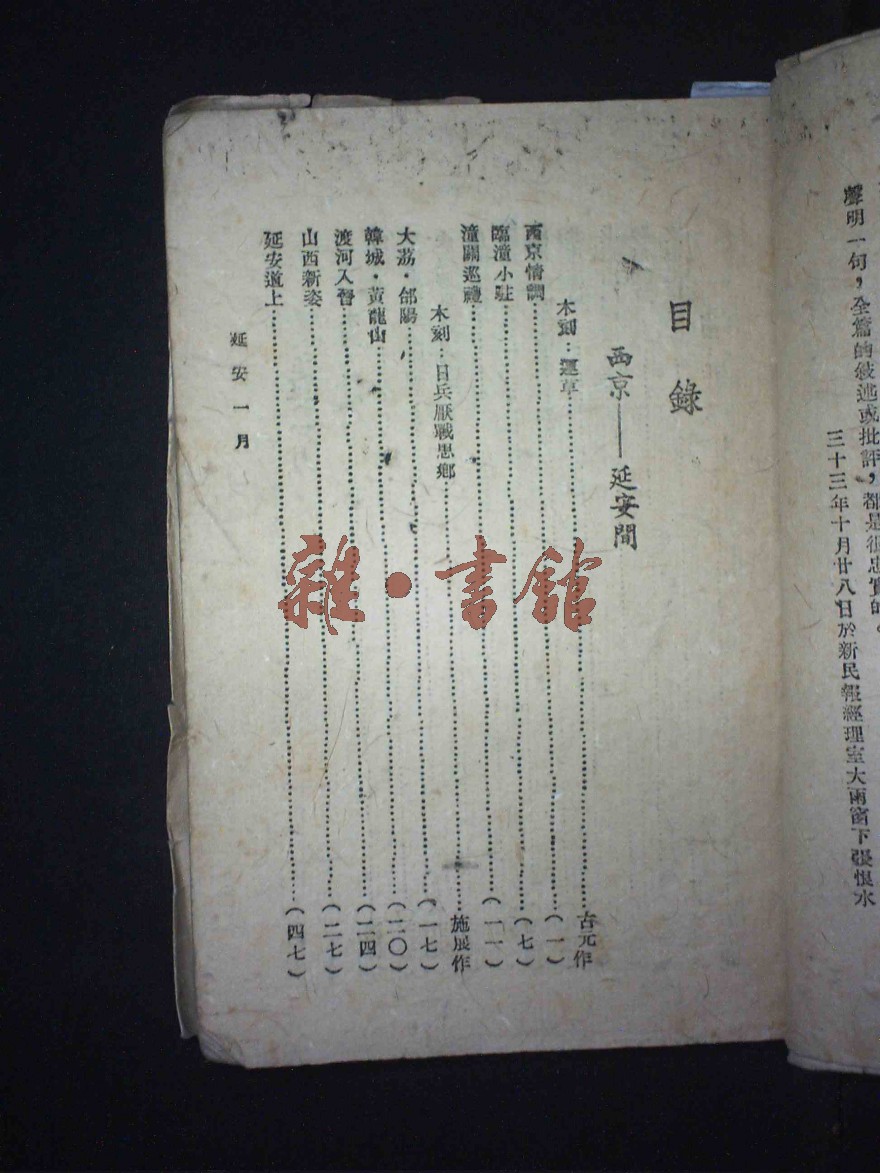 聲明一句，全篇的敍述或批評，都是很忠實的。
三十三年十月廿八日於新民報經理室大雨窗下張恨水
目錄
西京——延安間
木刻：運草……古元作
西京情調……（一）
臨潼小駐……（七）
潼關巡禮……（一一）
木刻：日兵厭戰思鄉……施展作
大荔·郃陽……（一七）
韓城·黃龍山……（二〇）
渡河入晉……（二四）
山西新姿……（二七）
延安道上……（四七）
延安一月
雜·書館